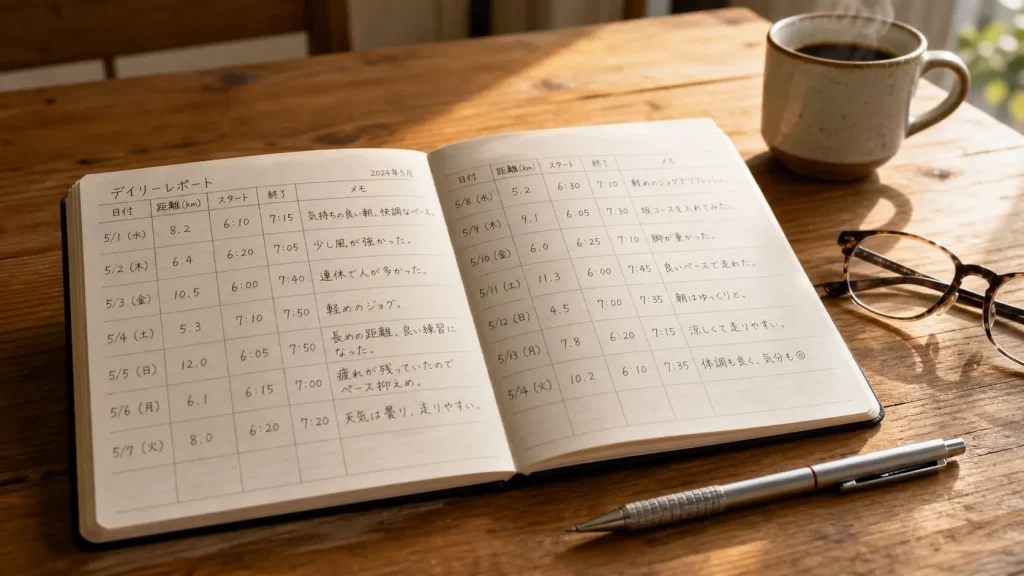 デイリーレポート 2024年5月
日付 距離(km) スタート 終了 メモ
5/1 (水) 8.2 6:10 7:15 気持ちの良い朝、快調なペース。
5/2 (木) 6.4 6:20 7:05 少し風が強かった。
5/3 (金) 10.5 6:00 7:40 連休で人が多かった。
5/4 (土) 5.3 7:10 7:50 軽めのジョグ。
5/5 (日) 12.0 6:05 7:50 長めの距離、良い練習に
なった。
5/6 (月) 6.1 6:15 7:00 疲れが残っていたので
ペース抑えめ。
5/7 (火) 8.0 6:20 7:20 天気は曇り、走りやすい。
日付 距離(km) スタート 終了 メモ
5/8 (水) 5.2 6:30 7:10 軽めのジョグでリフレッシュ。
5/9 (木) 9.1 6:05 7:30 坂コースを入れてみた。
5/10 (金) 6.0 6:25 7:10 脚が重かった。
5/11 (土) 11.3 6:00 7:45 良いペースで走れた。
5/12 (日) 4.5 7:00 7:35 朝はゆっくりと。
5/13 (月) 7.8 6:20 7:15 涼しくて走りやすい。
5/14 (火) 10.2 6:10 7:35 体調も良く、気分も◎